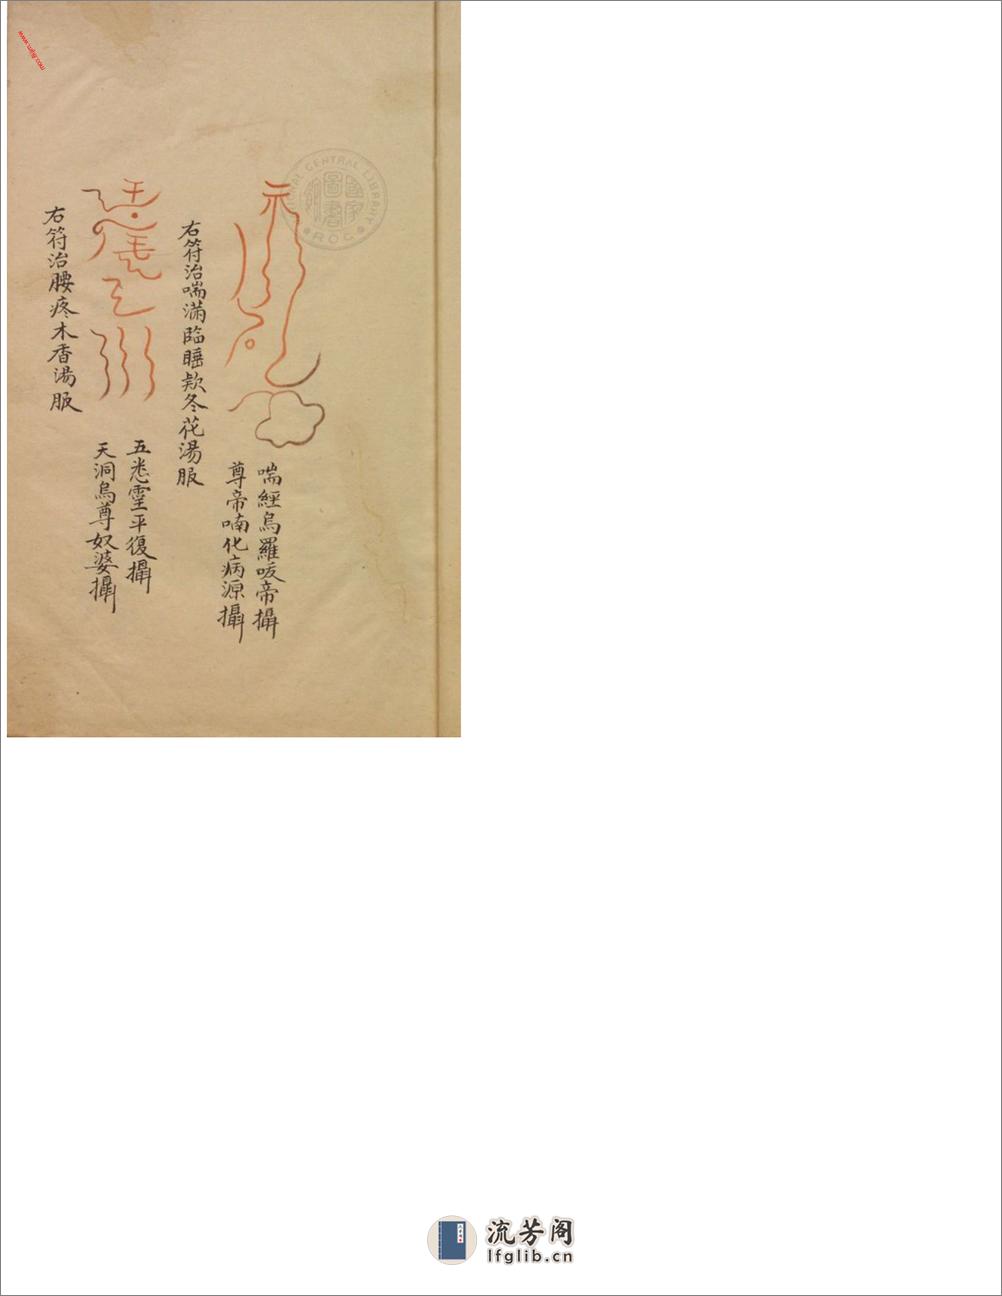 喘經烏羅吺帝攝
尊帝喃化病源攝
右符治喘滿臨睡款冬花湯服
五悉靈平復攝
天洞烏尊奴婆攝
右符治腰疼木香湯服
NATIONAL CENTRAL LIBRARY
國家圖書館
R.O.C
流芳阁
lfglib.cn